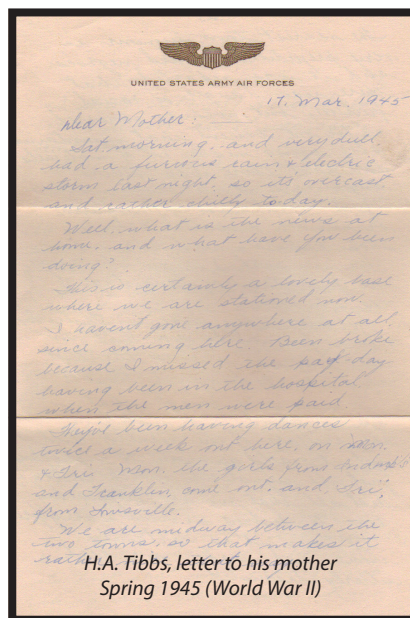 UNITED STATES ARMY AIR FORCES
17. Mar. 1945
Dear Mother:
Sat. morning, and very dull,
had a furious rain & electric
storm last night, so it's overcast
and rather chilly today.
Well, what is the news at
home, and what have you been
doing?
This is certainly a lovely base
where we are stationed now.
I havent gone anywhere at all
since coming here. Been broke
because I missed the pay day
having been in the hospital
when the men were paid.
They've been having dances
twice a week out here, on Mon.
& Fri. Mon. the girls from
and Franklin, come out, and Fri,
from
We are midway between the
two towns, so that makes it
rather
H.A. Tibbs, letter to his mother
Spring 1945 (World War II)